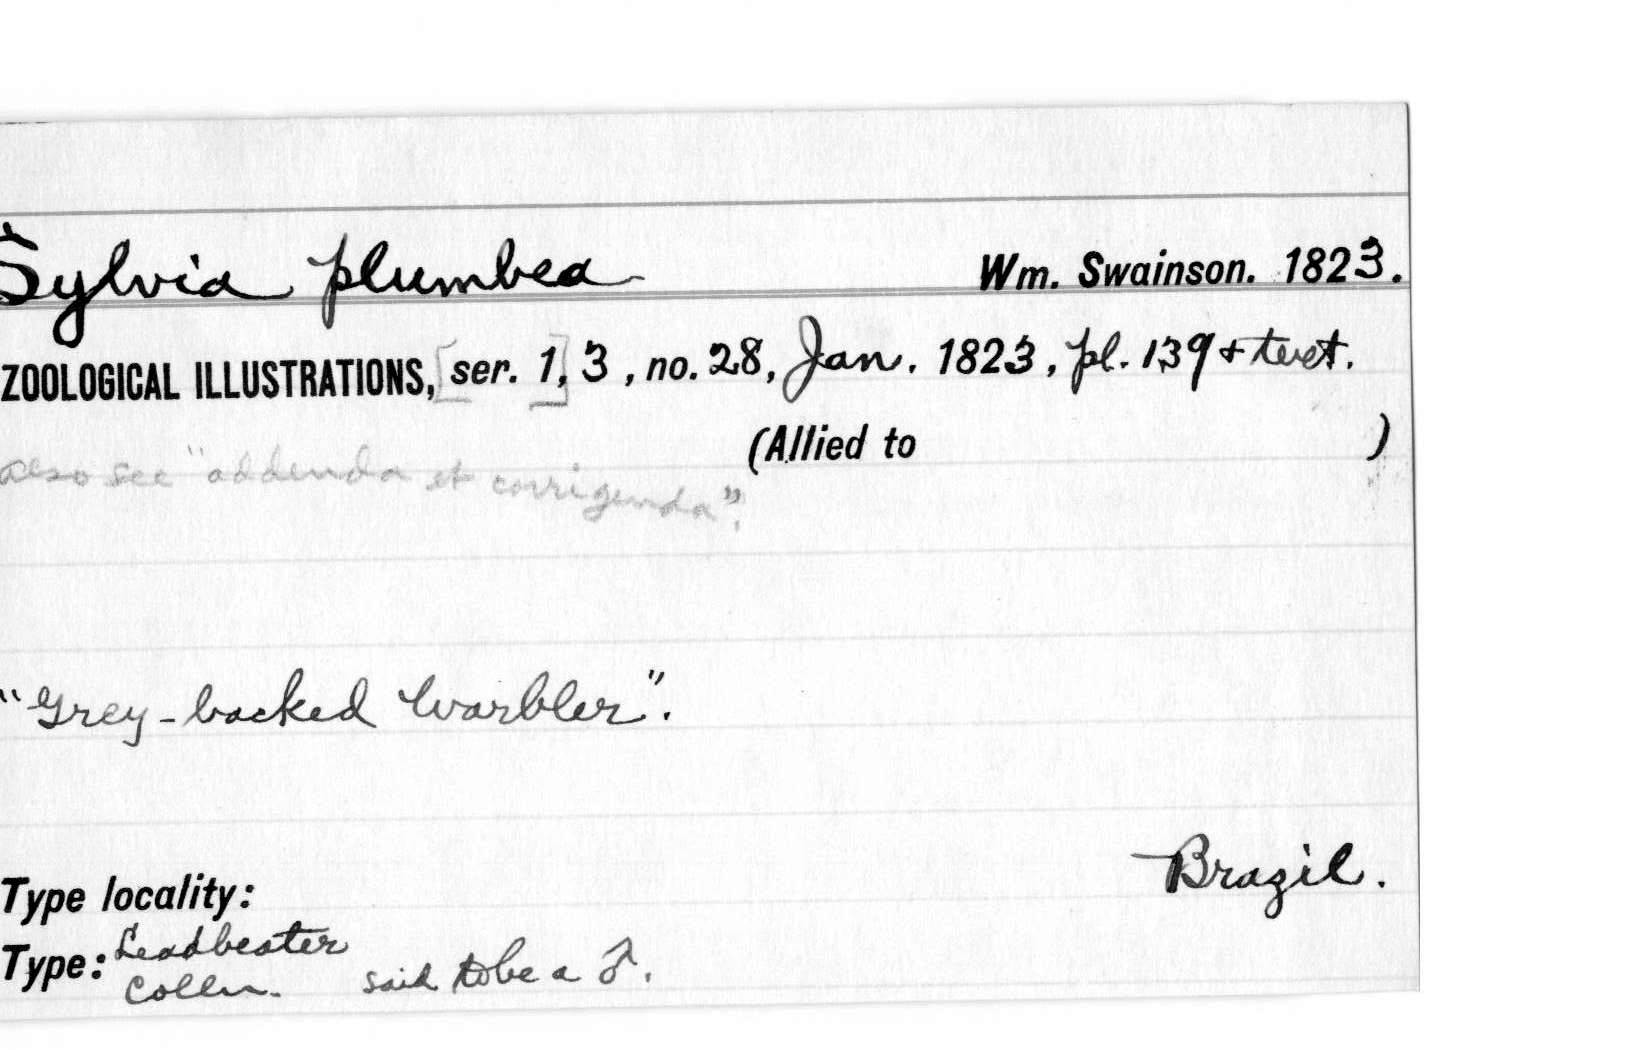 Sylvia plumbea Wm. Swainson. 1823.
ZOOLOGICAL ILLUSTRATIONS, [ser. 1], 3, no. 28, Jan. 1823, pl. 139 + text.
(Allied to )
also see "addenda et corrigenda".
"Grey-backed Warbler".
Brazil.
Type locality:
Type: Leadbeater
Colln. said to be a ♂.